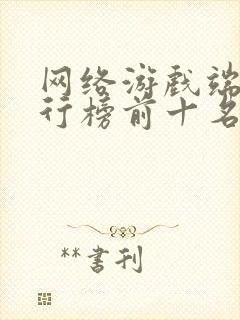 网络游戏端
行榜前十名
**书刊